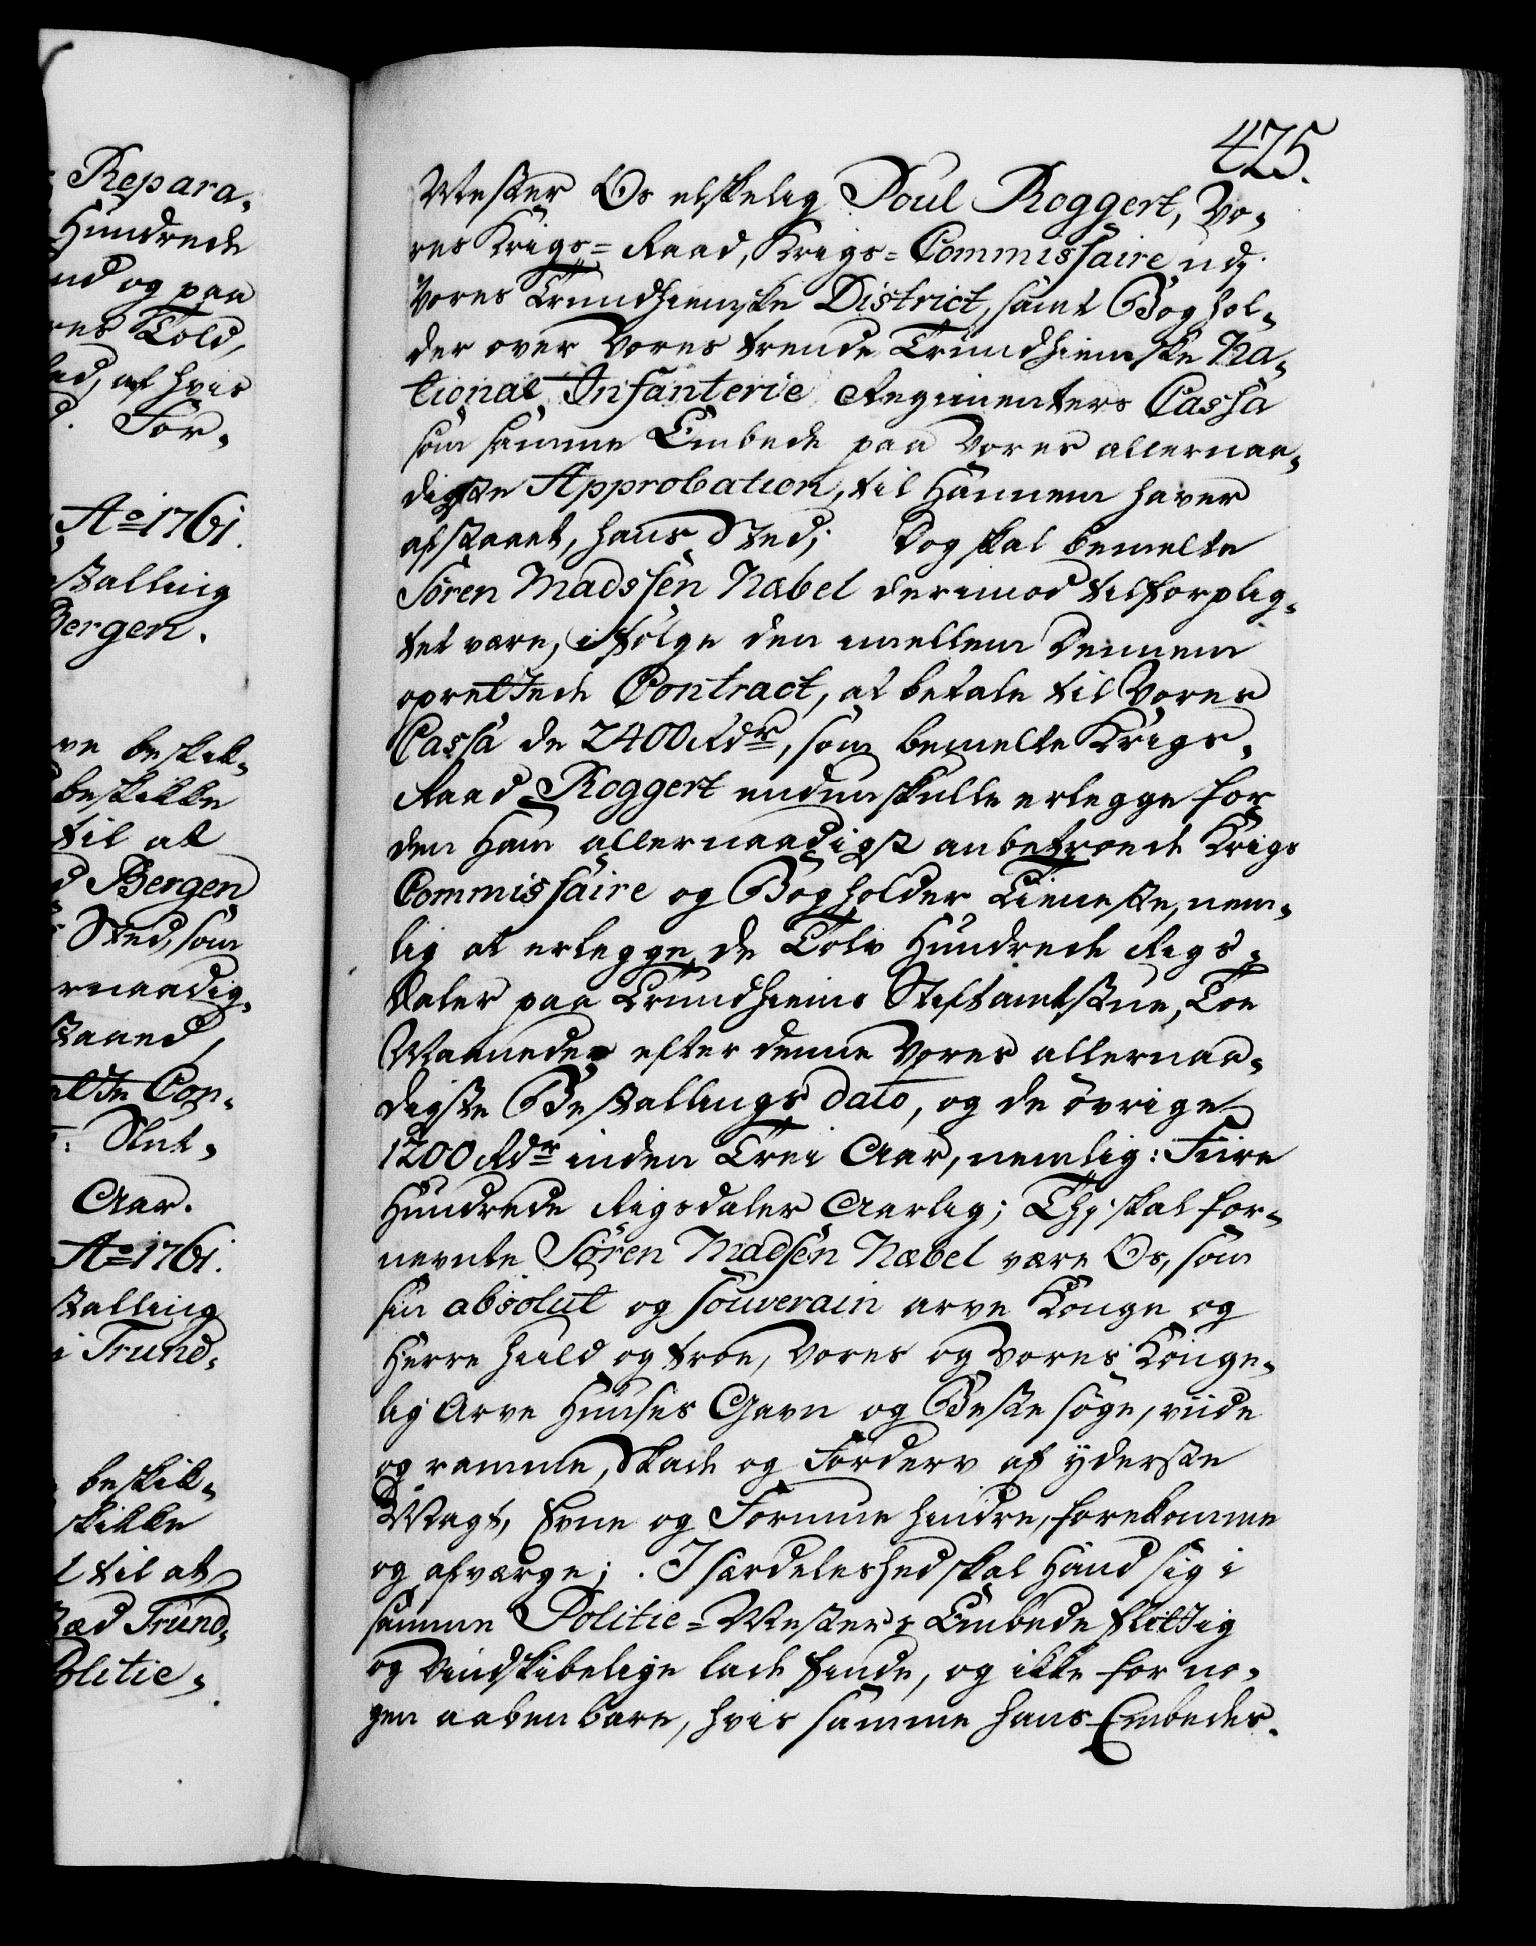 Repara-
Hundrede
og paa
Told,
at hvis
For-
Ao 1761.
stalling
Bergen.
beskik-
beskikke
til at
Bergen
Sted, som
ernaadig-
staaed,
Con-
Slut-
Aar.
Ao 1761.
stalling
i Trund-
beskik-
skikke
til at
Trund-
Politie-
425.
Mester Os elskelig Poul Roggert, Vo-
res Krigs-Raad, Krigs-Commissaire udj
Vores Trundhiemske District, samt Boghol-
der over Vores trende Trundhiemske Na-
tional Infanterie Regimenters Cassa
som samme Embede paa Vores allernaa-
digste Approbation, til Hannem haver
afstaaet, hans Sted; Dog skal bemelte
Sören Madssen Næbel derimod tilforplig-
tet være, ifölge den imellem Dennem
oprettede Contract, at betale til Vores
Cassa de 2400 Rdr, som bemelte Krigs-
Raad Roggert endnu skulle erlegge for
den Ham allernaadigst anbetroede Krigs
Commissaire og Bogholder Tieneste, nem-
lig at erlegge de Tolv Hundrede Rigs-
daler paa Trundhiems Stiftamtstue, Toe
Maaneder efter denne Vores allernaa-
digste Bestallings dato, og de övrige
1200 Rdr inden Trei Aar, nemlig: Fiire
Hundrede Rigsdaler Aarlig; Thj skal for-
nevnte Sören Madsen Næbel være Os, som
sin absolut og souverain arve Konge og
Herre huld og troe, Vores og Vores Konge-
lig Arve Huuses Gavn og Beste söge, viide
og ramme, Skade og Forderv af yderste
Magt, Evne og Formue hindre, forekomme
og afværge; Isærdeleshed skal Hand sig i
samme Politie-Mesters Embede flittig
og Vindskibelige lade finde, og ikke for no-
gen aabenbare, hvis samme hans Embedes-